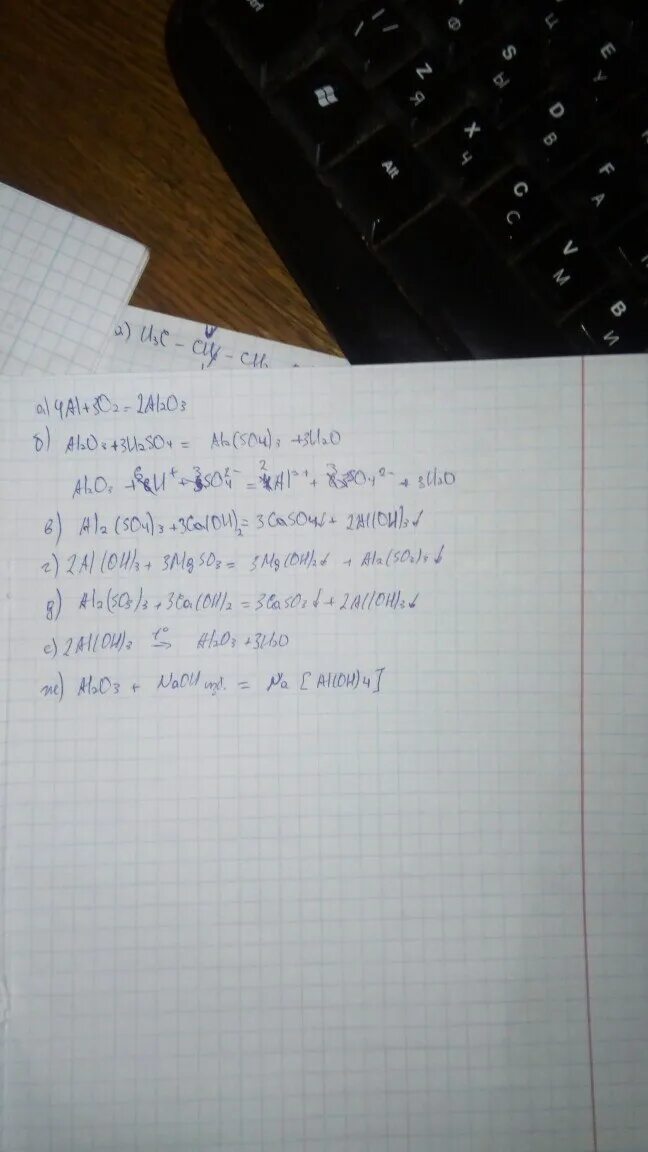 Alt
Z Я
S Ы
E У
X Ч
D В
Alt
C С
F А
V М
B И
а) H₃C - CH - CH₂
а) 4Al+3O₂=2Al₂O₃
б) Al₂O₃+3H₂SO₄ = Al₂(SO₄)₃ +3H₂O
Al₂O₃ + 6H⁺ + 3SO₄²⁻ = 2Al³⁺ + 3SO₄²⁻ + 3H₂O
в) Al₂(SO₄)₃+3Ca(OH)₂=3CaSO₄↓+ 2Al(OH)₃↓
г) 2Al(OH)₃+ 3MgSO₃= 3Mg(OH)₂↓ + Al₂(SO₃)₃↓
д) Al₂(SO₃)₃ +3Ca(OH)₂=3CaSO₃↓+2Al(OH)₃↓
е) 2Al(OH)₃ t° → Al₂O₃+3H₂O
ж) Al₂O₃ + NaOH изб. = Na [Al(OH)₄]